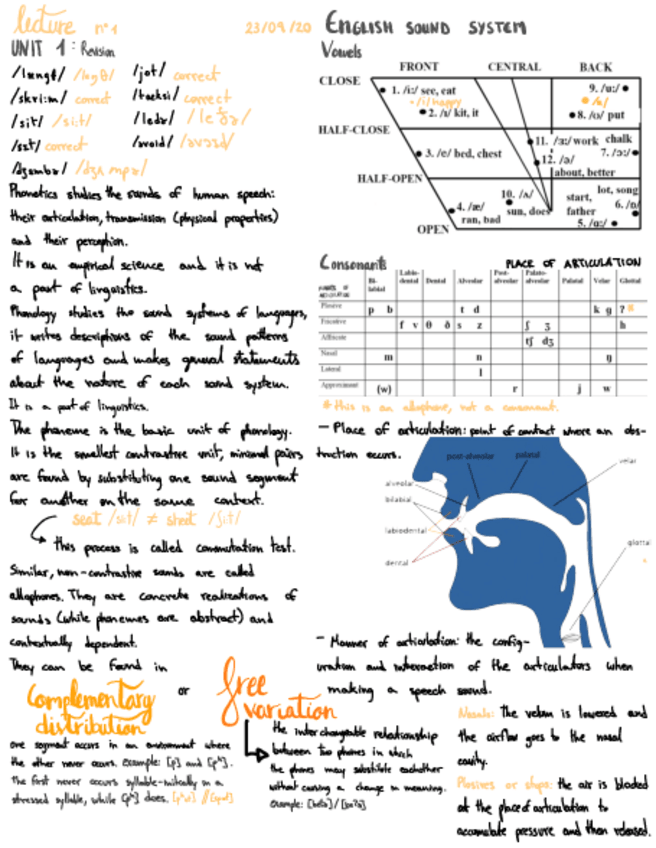 lecture n°1
23/09/20
UNIT 1: Revision
/længt/ /leŋθ/ /jot/ correct
/skri:m/ correct /tæksi/ correct
/sit/ /si:t/ /ledə/
/sɔt/ correct /avoid/
Phonetics studies the sounds of human speech:
their articulation, transmission (physical properties)
and their perception.
It is an empirical science and it is not
a part of linguistics.
Phonology studies the sound systems of languages,
it writes descriptions of the sound patterns
of languages and makes general statements
about the nature of each sound system.
It is a part of linguistics.
The phoneme is the basic unit of phonology.
It is the smallest contrastive unit, minimal pairs
are found by substituting one sound segment
for another in the same context.
seat /sit/ ≠ sheet /ʃit/
This process is called commutation test.
Similar, non-contrastive sounds are called
allophones. They are concrete realizations of
sounds (while phonemes are abstract) and
contextually dependent.
They can be found in
Complementary
distribution
or
free
variation
one segment occurs in an environment where
the other never occurs. Example: [p] and [pʰ].
The first never occurs syllable-initially in a
stressed syllable, while [pʰ] does.
the interchangeable relationship
between two phones in which
the phones may substitute eachother
without causing a change in meaning.
Example:
ENGLISH SOUND SYSTEM
Vowels
FRONT CENTRAL BACK
CLOSE
1. /i:/ see, eat
/i/ happy
2. /ɪ/ kit, it
9. /u:/
8. /ʊ/ put
HALF-CLOSE
3. /e/ bed, chest
11. /ɜ:/ work
12. /ə/
about, better
chalk
7. /ɔ:/
HALF-OPEN
4. /æ/
ran, bad
10. /ʌ/
sun, does
start,
father
5. /ɑ:/
lot, song
6. /ɒ/
OPEN
Consonants
PLACE OF ARTICULATION
MANNER OF ARTICULATION
Bi-labial Labio-dental Dental Alveolar Post-alveolar Palato-alveolar Palatal Velar Glottal
Plosive p b t d k g ? *
Fricative f v θ ð s z ʃ ʒ h
Affricate tʃ dʒ
Nasal m n ŋ
Lateral l
Approximant (w) r j w
* this is an allophone, not a consonant.
- Place of articulation: point of contact where an obs-
truction occurs.
post-alveolar
palatal
velar
alveolar
bilabial
labiodental
dental
glottal
- Manner of articulation: the config-
uration and interaction of the articulators when
making a speech sound.
Nasals: The velum is lowered and
the airflow goes to the nasal
cavity.
Plosives or stops: the air is blocked
at the place of articulation to
accumulate pressure and then released.